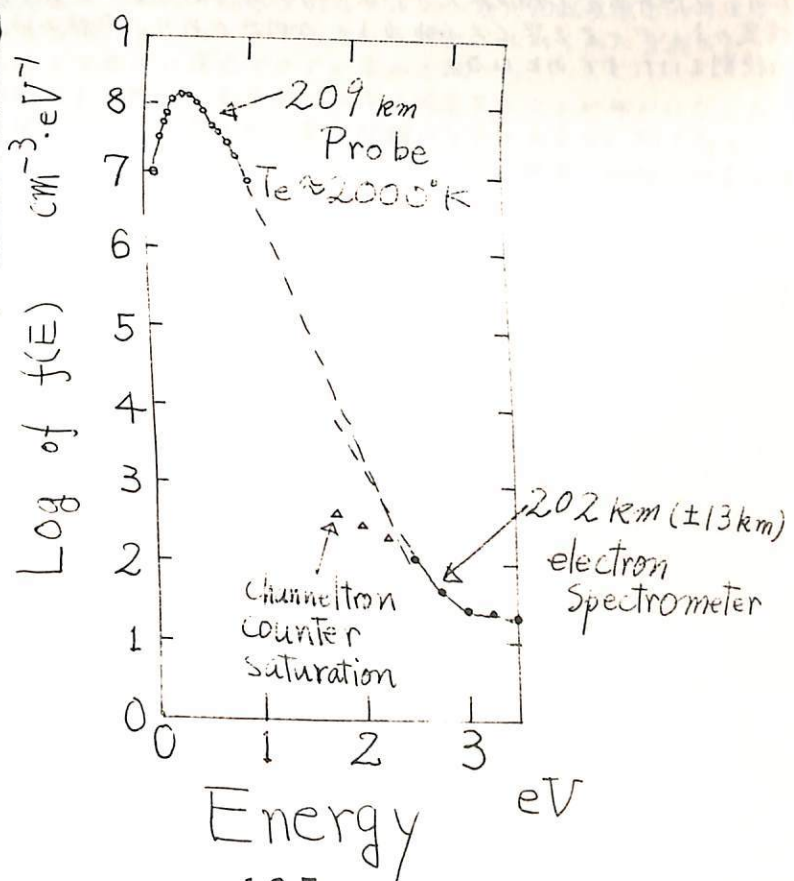 9
8
7
6
5
4
3
2
1
0
Log of f(E) cm⁻³·eV⁻¹
209 km
Probe
Te ≈ 2000°K
202 km (±13 km)
electron
Spectrometer
Channeltron
counter
saturation
0 1 2 3
eV
Energy